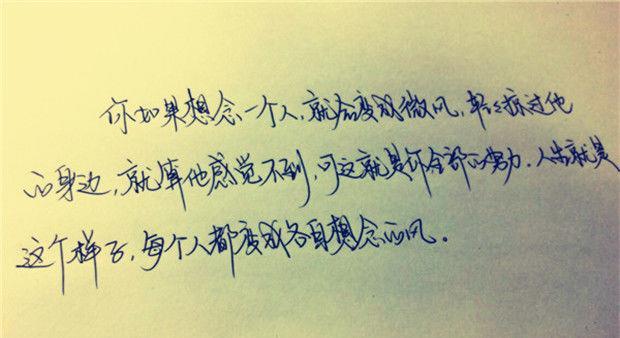 你如果想念一个人,就会变成微风,轻轻掠过他
的身边,就算他感觉不到,可这就是你全部的努力.人生就是
这个样子,每个人都变成各自想念的风.